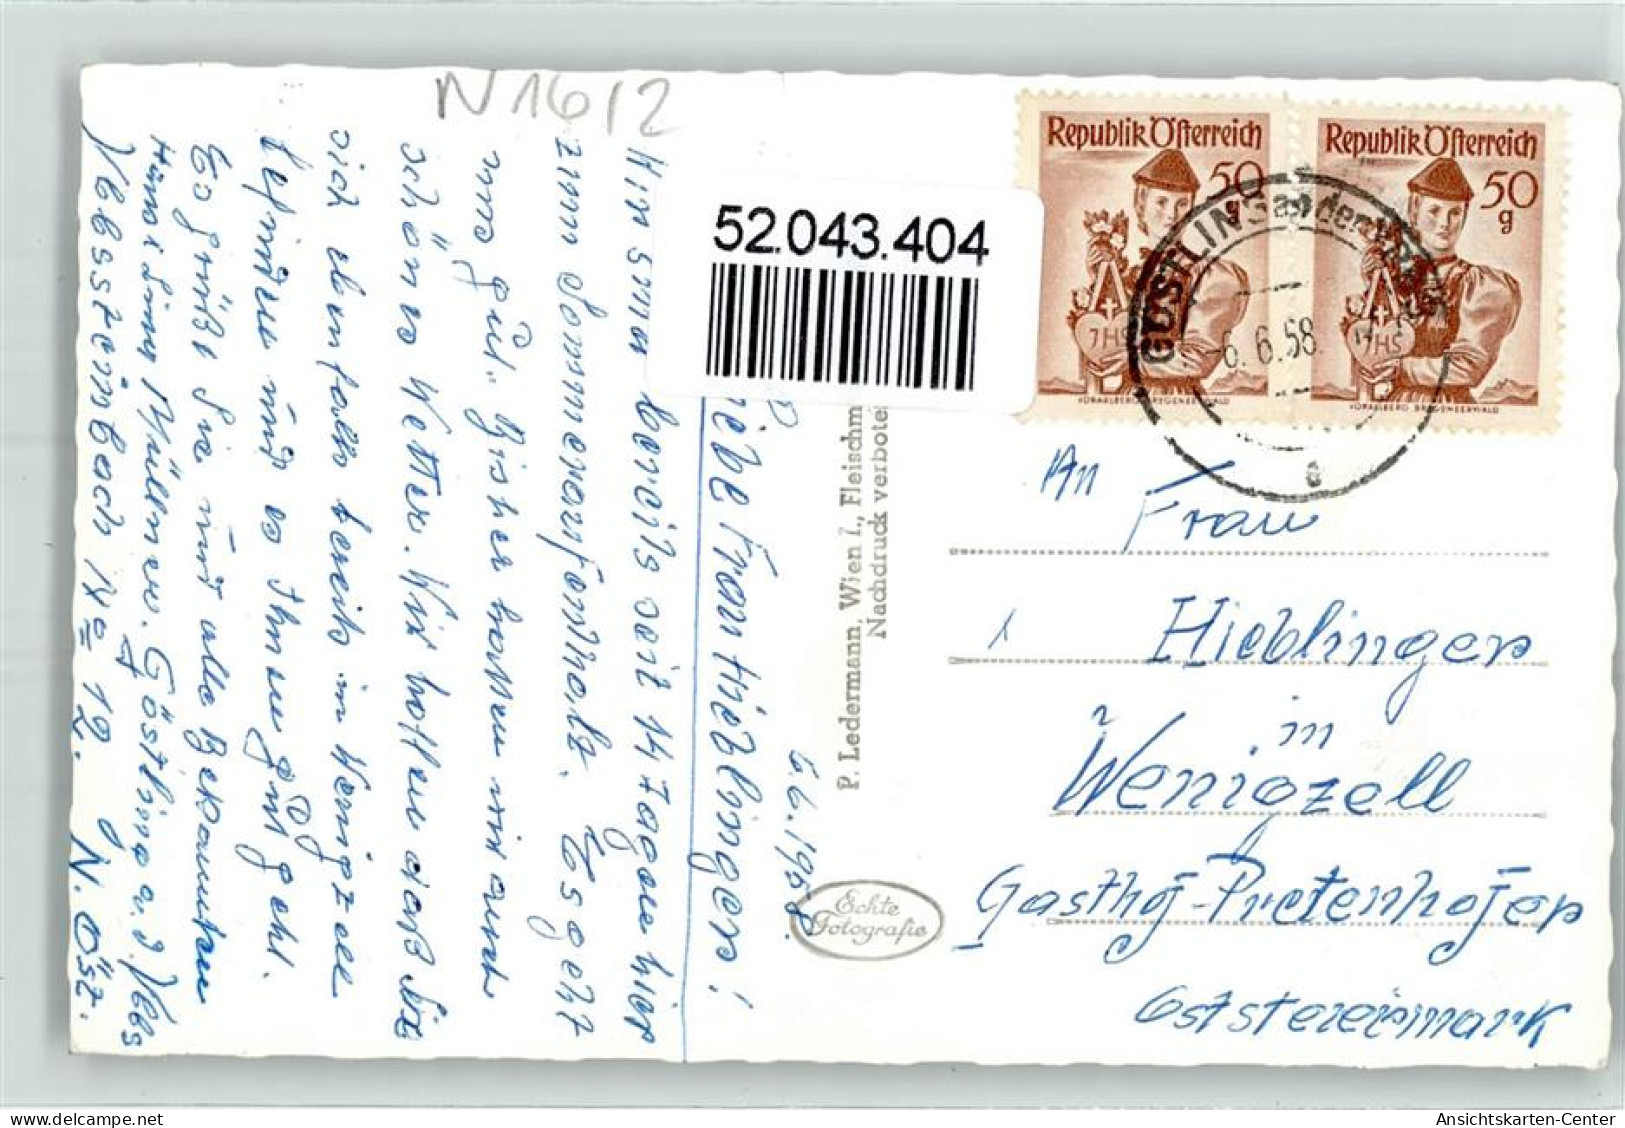 N 16/2
52.043.404
Republik Österreich
50
g
JHS
VORARLBERG BREGENZERWALD
Republik Österreich
50
g
JHS
VORARLBERG BREGENZERWALD
GÖSTLING an der Ybbs
-6.6.58
a
An
Frau
Hieblinger
in
Wenigzell
Gasthof Pretenhofer
Oststeiermark
P. Ledermann, Wien I., Fleischm
Nachdruck verboten
Echte
Fotografie
6.6.1958.
Liebe Frau Hieblinger!
Wir sind bereits seit 14 Tagen hier
zum Sommeraufenthalt. Es geht
uns gut. Bisher hatten wir auch
schönes Wetter. Wir hoffen daß Sie
sich ebenfalls bereits in Wenigzell
befinden und es Ihnen gut geht.
Es grüßt Sie und alle Bekannten
Göstling a.d. Ybbs
Ybbssteinbach No 12. N.Öst.